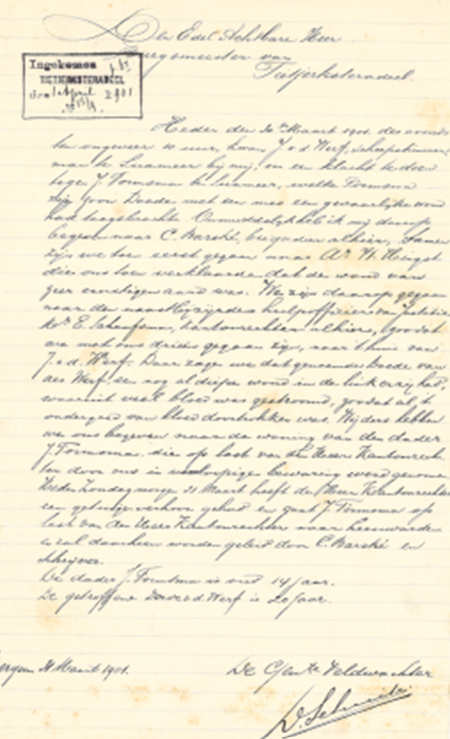 Den Edel Achtbare Heer
Burgemeester van
Tietjerksteradeel.
Ingekomen
TIETJERKSTERADEEL
den 1 April 1901
Heden den 30en Maart 1901 des avonds
ten ongeveer 10 uur, kwam J. v.d. Werf, scheepstimmer-
man te Suameer bij mij, om een klacht te doen
tegen J. Formsma te Suameer, welke Formsma
zijn zoon Doede met een mes een gevaarlijke wond
had toegebracht. Onmiddelijk heb ik mij daarop
begeven naar C. Barské, brigadier alhier, samen
zijn we toen eerst gegaan naar Dr. H.
die ons toen verklaarde dat de wond van
zeer ernstigen aard was. We zijn daarop gegaan
naar den hulpofficier van Justitie
Mr. E. kantonrechter alhier, zoodat
we met ons drieën gegaan zijn, naar 't huis van
J. v.d. Werf. Daar zagen we dat genoemde Doede van
der Werf, een nog al diepe wond in de linker zij had,
waaruit veel bloed was gestroomd, zoodat al 't
ondergoed van bloed doortrokken was. Wijders hebben
we ons begeven naar de woning van den dader
J. Formsma, die op last van den Heer Kantonrech-
ter door ons in voorloopige bewaring werd genomen.
Heden Zondagmorgen 31 Maart heeft de Heer Kantonrechter
een getuigenverhoor gehad en gaat J. Formsma op
last van den Heer Kantonrechter naar Leeuwarden
en zal daarheen worden geleid door C. Barské en
schrijver.
De dader J. Formsma is oud 14 jaar.
De getroffene Doede v.d. Werf is 20 jaar.
Bergum 31 Maart 1901.
De Gemte Veldwachter